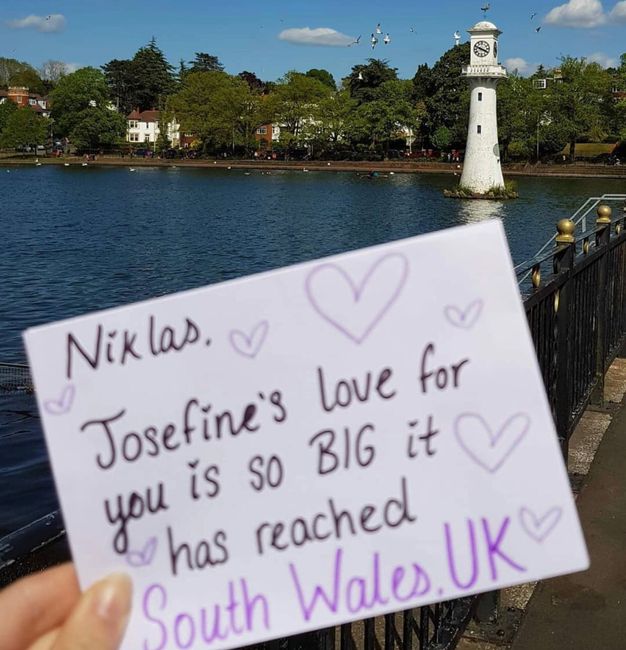 Niklas.
Josefine's love for
you is so BIG it
has reached
South Wales, UK